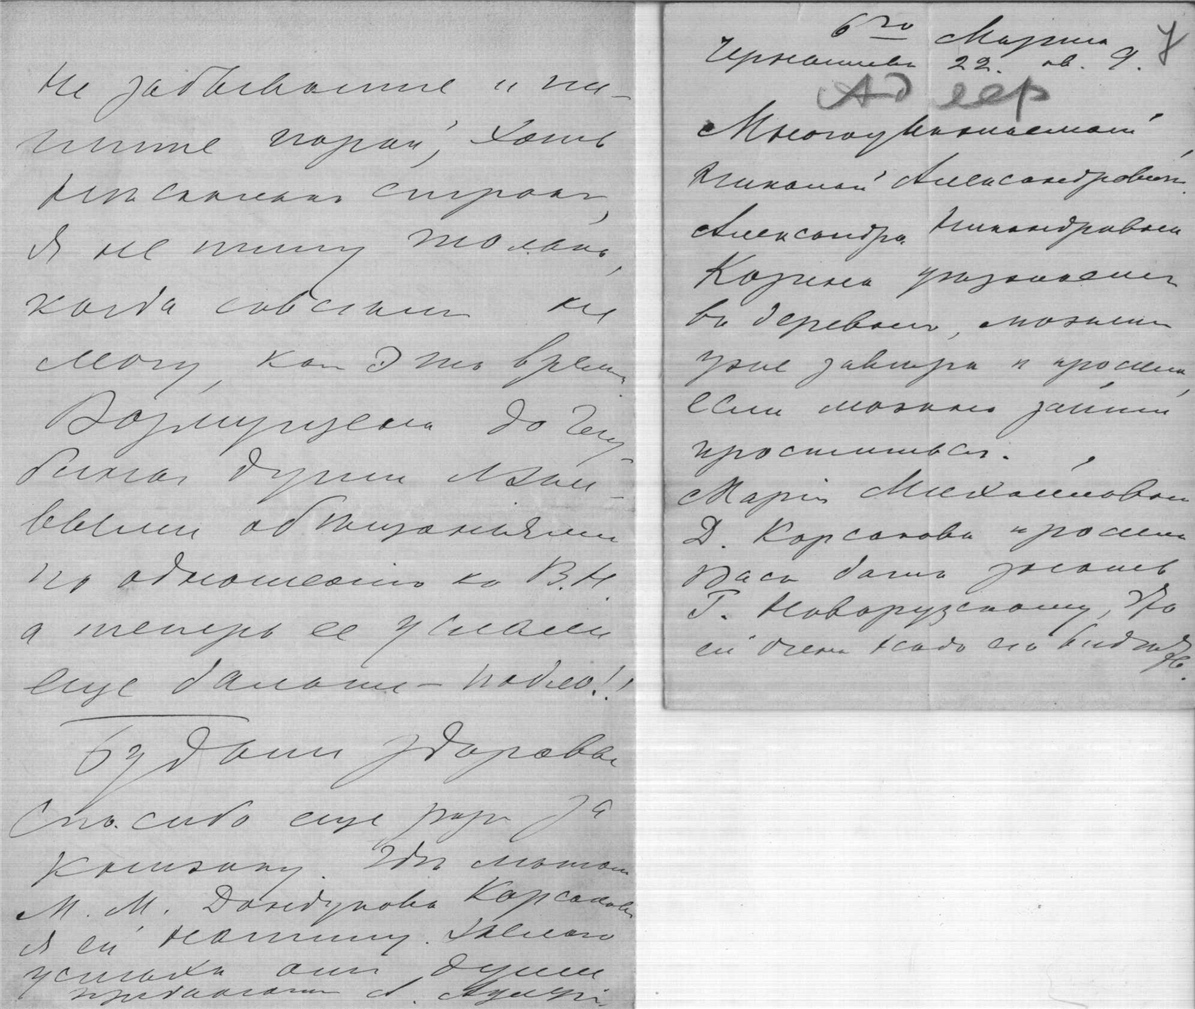 Не забывайте и пи-
шите порой, хоть
несколько строкъ,
Я не пишу только,
когда совсѣмъ не
могу, какъ это время
Возмущена до глу-
бины души
по отношенію къ В.Н.
а теперь ее услали
еще дальше – подло!!
Будьте здоровы
Спасибо еще разъ за
книжку. Гдѣ
М. М. Дондукова Корсакова
Я ей напишу. Желаю
успѣха отъ души
А.
6го Марта
Чернышевъ 22. кв. 9.
Многоуважаемый
Николай Александровичъ,
Александра Никандровна
уѣзжаетъ
въ деревню, можетъ
уже завтра и проситъ,
если можно зайти
проститься.
Марія Михайловна
Д. Корсакова просила
Васъ дать знать
Г. Новорусскому, что
ей очень надо его видѣть